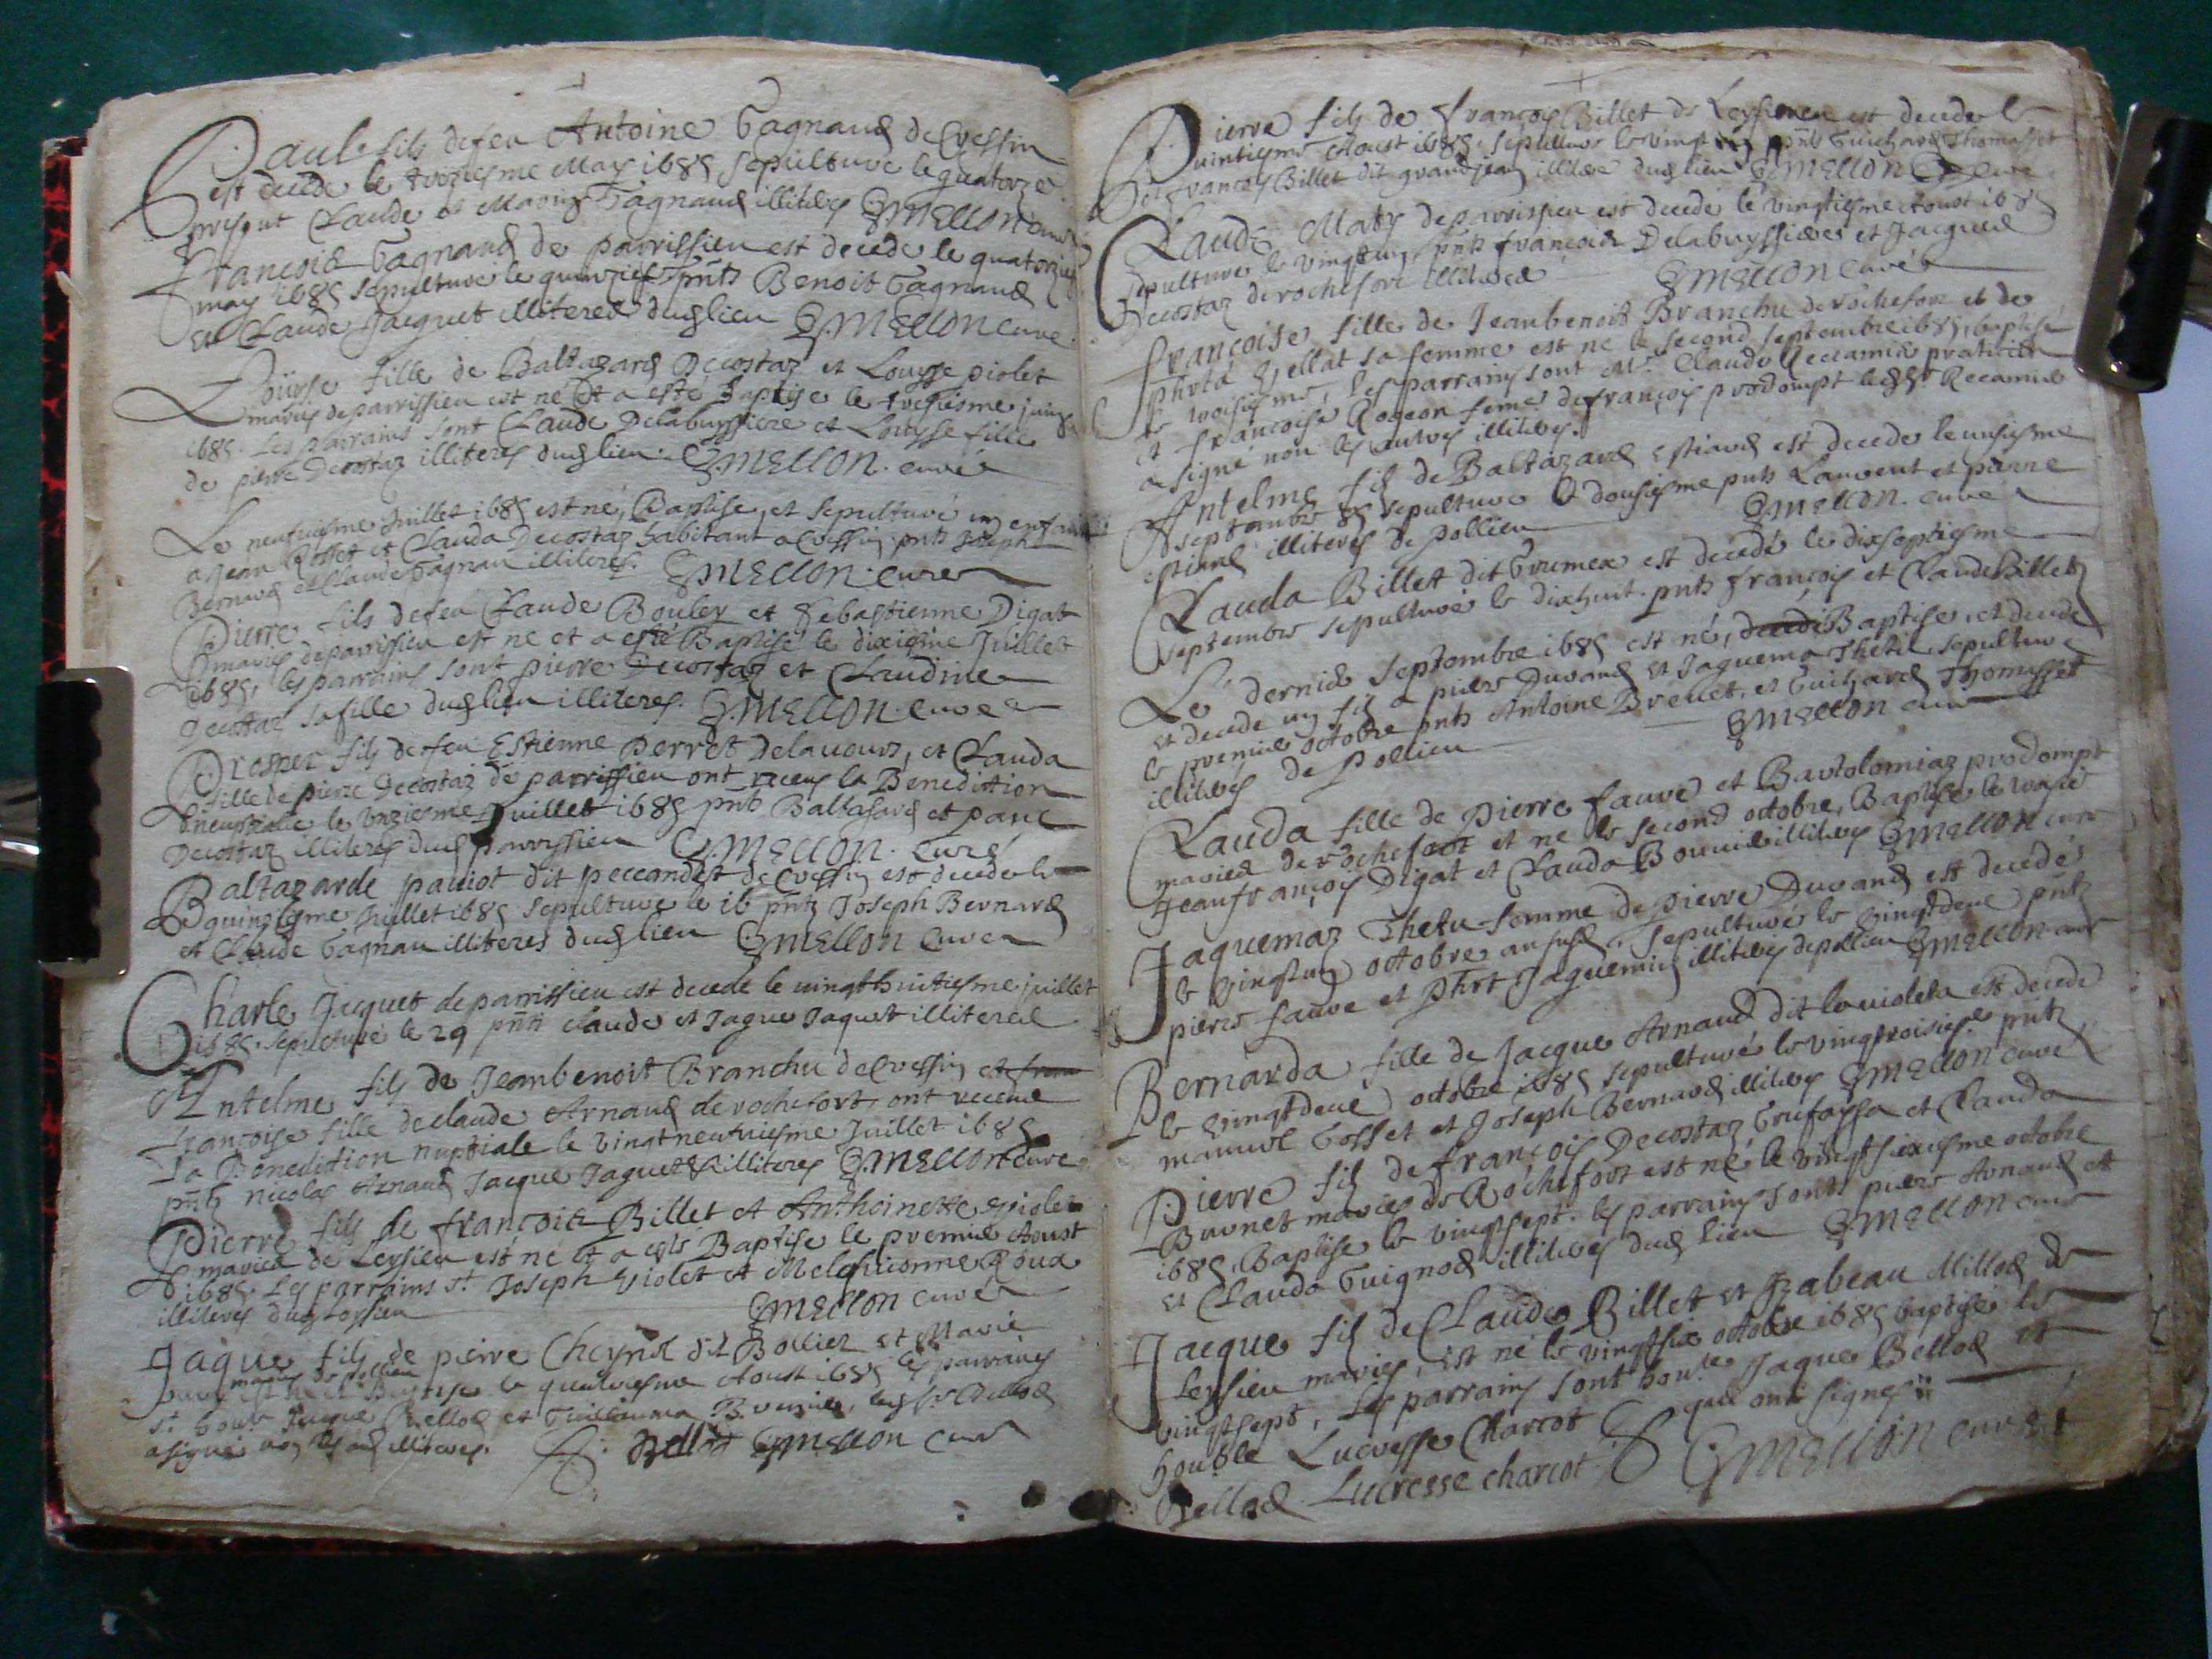 Paule fils de feu Antoine Gagnand de Cressin
est decede le troziesme May 1685 sepulture le quatorze
present Claude et Gagnand illiteres GMELLON curé
Francois Gagnand de parrissieu est decede le quatorzies
may 1685 sepulture le quinzies pnts Benoit Gagnand
et Claude Jacquet illiteres dud lieu GMELLON cure
Louyse fille de Baltazard Decostaz et Louyse piolet
mariés de parrissieu est né et a esté Baptise le trezeisme juing
1685. Les parrains sont Claude Delabuyssiere et Louyse fille
de pierre Decostaz illiteres dud lieu. GMELLON. curé
Le neufuiesme Juillet 1685 est né, Baptise, et sepulturé un enfant
a Jean Rosset et Clauda Decostaz habitant a Cressin pnts Joseph
Bernard et Claude Gagnan illiteres. GMELLON. cure
Pierre fils de feu Claude Bouley et Sebastienne Digat
mariés de parrissieu est ne et a esté Baptise le dixiesme Juillet
1685, les parrains sont pierre Decostaz et Claudine
Decostaz sa fille dud lieu illiteres. GMELLON. cure
Prosper fils de feu Estienne Perret Delavours, et Clauda
fille de pierre Decostaz de parrissieu ont receu la Benediction
nuptialle le unziesme Juillet 1685 pnts Baltasard et
Decostaz illiteres dud parrissieu GMELLON. Curé
Baltazarde dit de Cressin est decede le
quinziesme Juillet 1685 sepulture le 16 pnts Joseph Bernard
et Claude Gagnan illiteres dud lieu GMELLON Cure
Charle Jacquet de parrissieu est decede le uingthuitiesme juillet
1685. sepulturé le 29 pnts claude et Jaque Jaquet illiteres
Antelme fils de Jeanbenoit Branchu de Cressin et
françoise fille de claude Arnaud de rochefort, ont receu
La Benediction nuptiale le vingt neufuiesme Juillet 1685
pnts nicolas Arnaud Jacque Jaquet illiteres GMELLON cure
Pierre fils de françois Billet et Anthoinette uiolet
mariés de Leysieu est né et a esté Baptise le premier Aoust
1685. Les parrains st. Joseph uiolet et Melchionne Roux
illiteres dud Leysieu GMELLON curé
Jaque fils de pierre Cheynel dit Bollier et Marie
mariés de pollieu
est né et Baptise le quatriesme Aoust 1685 les parrains
st. honr. Jaque Bellod et Guillauma Brunier, led sr. Bellod
a signé non les aud illiteres. Bellod GMELLON Curé
Pierre fils de françois Billet de Leysieu est decede le
vintiesme Aoust 1685 sepulture le vingt pnts Guichard Thomasset
et françois Billet dit grandjean illitere dud lieu GMELLON Cure
Claude Maty de parrissieu est decede le vingtiesme Aoust 1685
sepulture le vingtun, pnts françois Delabuyssiere et Jacques
Decostaz de rochefort illiteres GMELLON curé
françoise, fille de Jeanbenoit Branchu de rochefort et de
sa femme est ne le second septembre 1685, baptisé
le troisiesme, les parrains sont Mr. Claude Recamier praticien
et francoise Rogeon feme de françois prodompt led Sr Recamier
a signé non les autres illiteres.
Antelme fils de Baltazard Estiard est decede le unsiesme
septembre 85 sepulture le dousiesme pnts Laurent et pierre
estiard illiteres de pollieu GMELLON. cure
Clauda Billet dit Grumex est decedé le dixseptiesme
septembre sepulturé le dixhuit. pnts françois et Claude Billet
Le dernier septembre 1685 est né, Baptise, et decede
et decede un fils a pierre Durand et Jaquema Thetu, sepulture
le premier octobre pnts Antoine Brevet, et Guichard Thomasset
illiteres de Pollieu GMELLON cure
Clauda fille de Pierre fauve et Bartolomiaz prodompt
mariés de rochefort et ne le second octobre, Baptise le trois
Jean françois Digat et Clauda Bournier illiteres GMELLON cure
Jaquemaz Thetu femme de pierre Durand est decedé
le vingtun octobre , sepulturé le vingtdeux pnts
pierre fauve et phrt Jaquemin illiteres de pollieu GMELLON cure
Bernarda fille de Jacque Arnaud dit la uioleta est decede
le vingtdeux octobre 1685 sepulturé le vingtroisies pnts
Gosset et Joseph Bernard illiteres GMELLON cure
Pierre fils de françois Decostaz et Clauda
Brunet mariés de Rochefort est né le vingtsixiesme octobre
1685, Baptise le vingtsept. les parrains sont pierre Arnaud et
et Clauda Guignod illiteres dud lieu GMELLON cure
Jacque fils de Claude Billet et Izabeau Millod de
Leysieu mariés, est né le vingtsix octobre 1685 baptisé le
vingtsept, Les parrains sont honble Jaque Bellod et
honble Lucresse Charcot qui ont signés
Bellod Lucresse charcot GMELLON curé